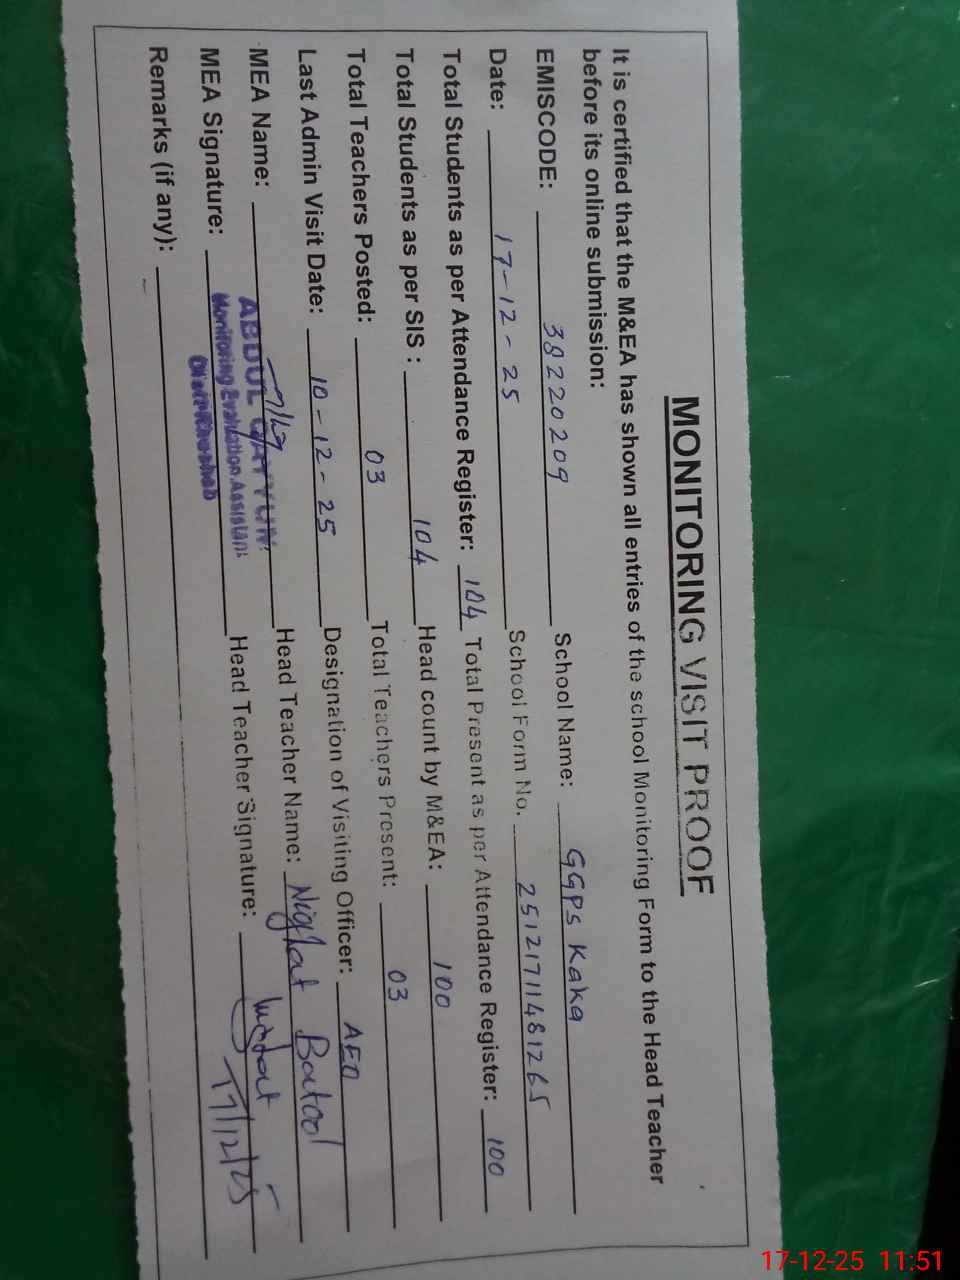 MONITORING VISIT PROOF
It is certified that the M&EA has shown all entries of the school Monitoring Form to the Head Teacher
before its online submission:
EMISCODE: 38220209 School Name: GGPS Kaka
Date: 17-12-25 School Form No. 25121711481265
Total Students as per Attendance Register: 104 Total Present as per Attendance Register: 100
Total Students as per SIS : 104 Head count by M&EA: 100
Total Teachers Posted: 03 Total Teachers Present: 03
Last Admin Visit Date: 10-12-25 Designation of Visiting Officer: AEO
MEA Name: ABDUL QAYYUM Head Teacher Name: Nighat Batool
MEA Signature: Monitoring Evaluation Assistant Head Teacher Signature: 17/12/25
Distt Khushab
Remarks (if any): -
17-12-25 11:51